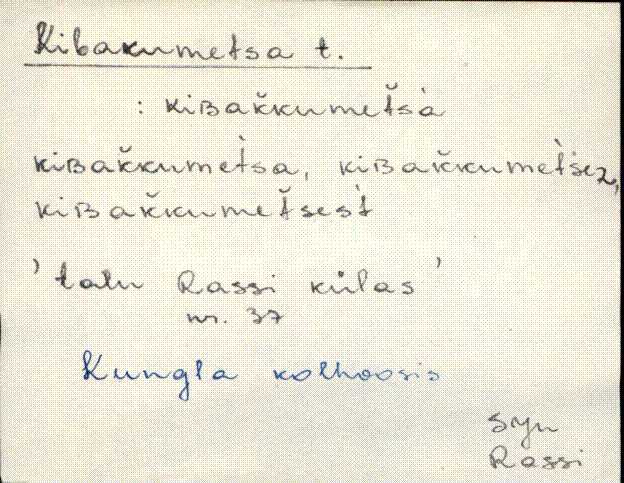 Kibakumetsa t.
: kiʙak̆kumet̆sà
kiʙak̆kumet̀sa, kiʙak̆kumet̀sez,
kiʙak̆kumet̆sest̀
'talu Rassi külas'
nr. 37
Kungla kolhoosis
Syn
Rassi